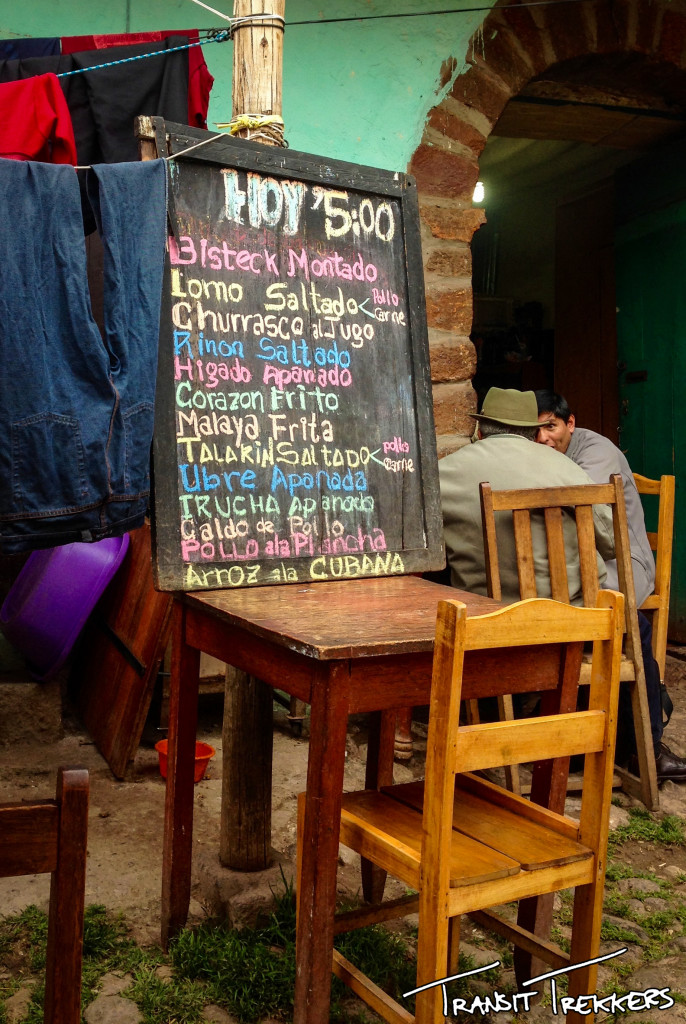 HOY '5:00
Bisteck Montado
Lomo Saltado < Pollo Carne
Churrasco al Jugo
Riñon Saltado
Higado Apanado
Corazon Frito
Malaya Frita
TALARIN SALTADO < pollo Carne
Ubre Apanada
TRUCHA Apanado
Caldo de Pollo
POLLO ala Plancha
Arroz ala CUBANA
TRANSIT TREKKERS